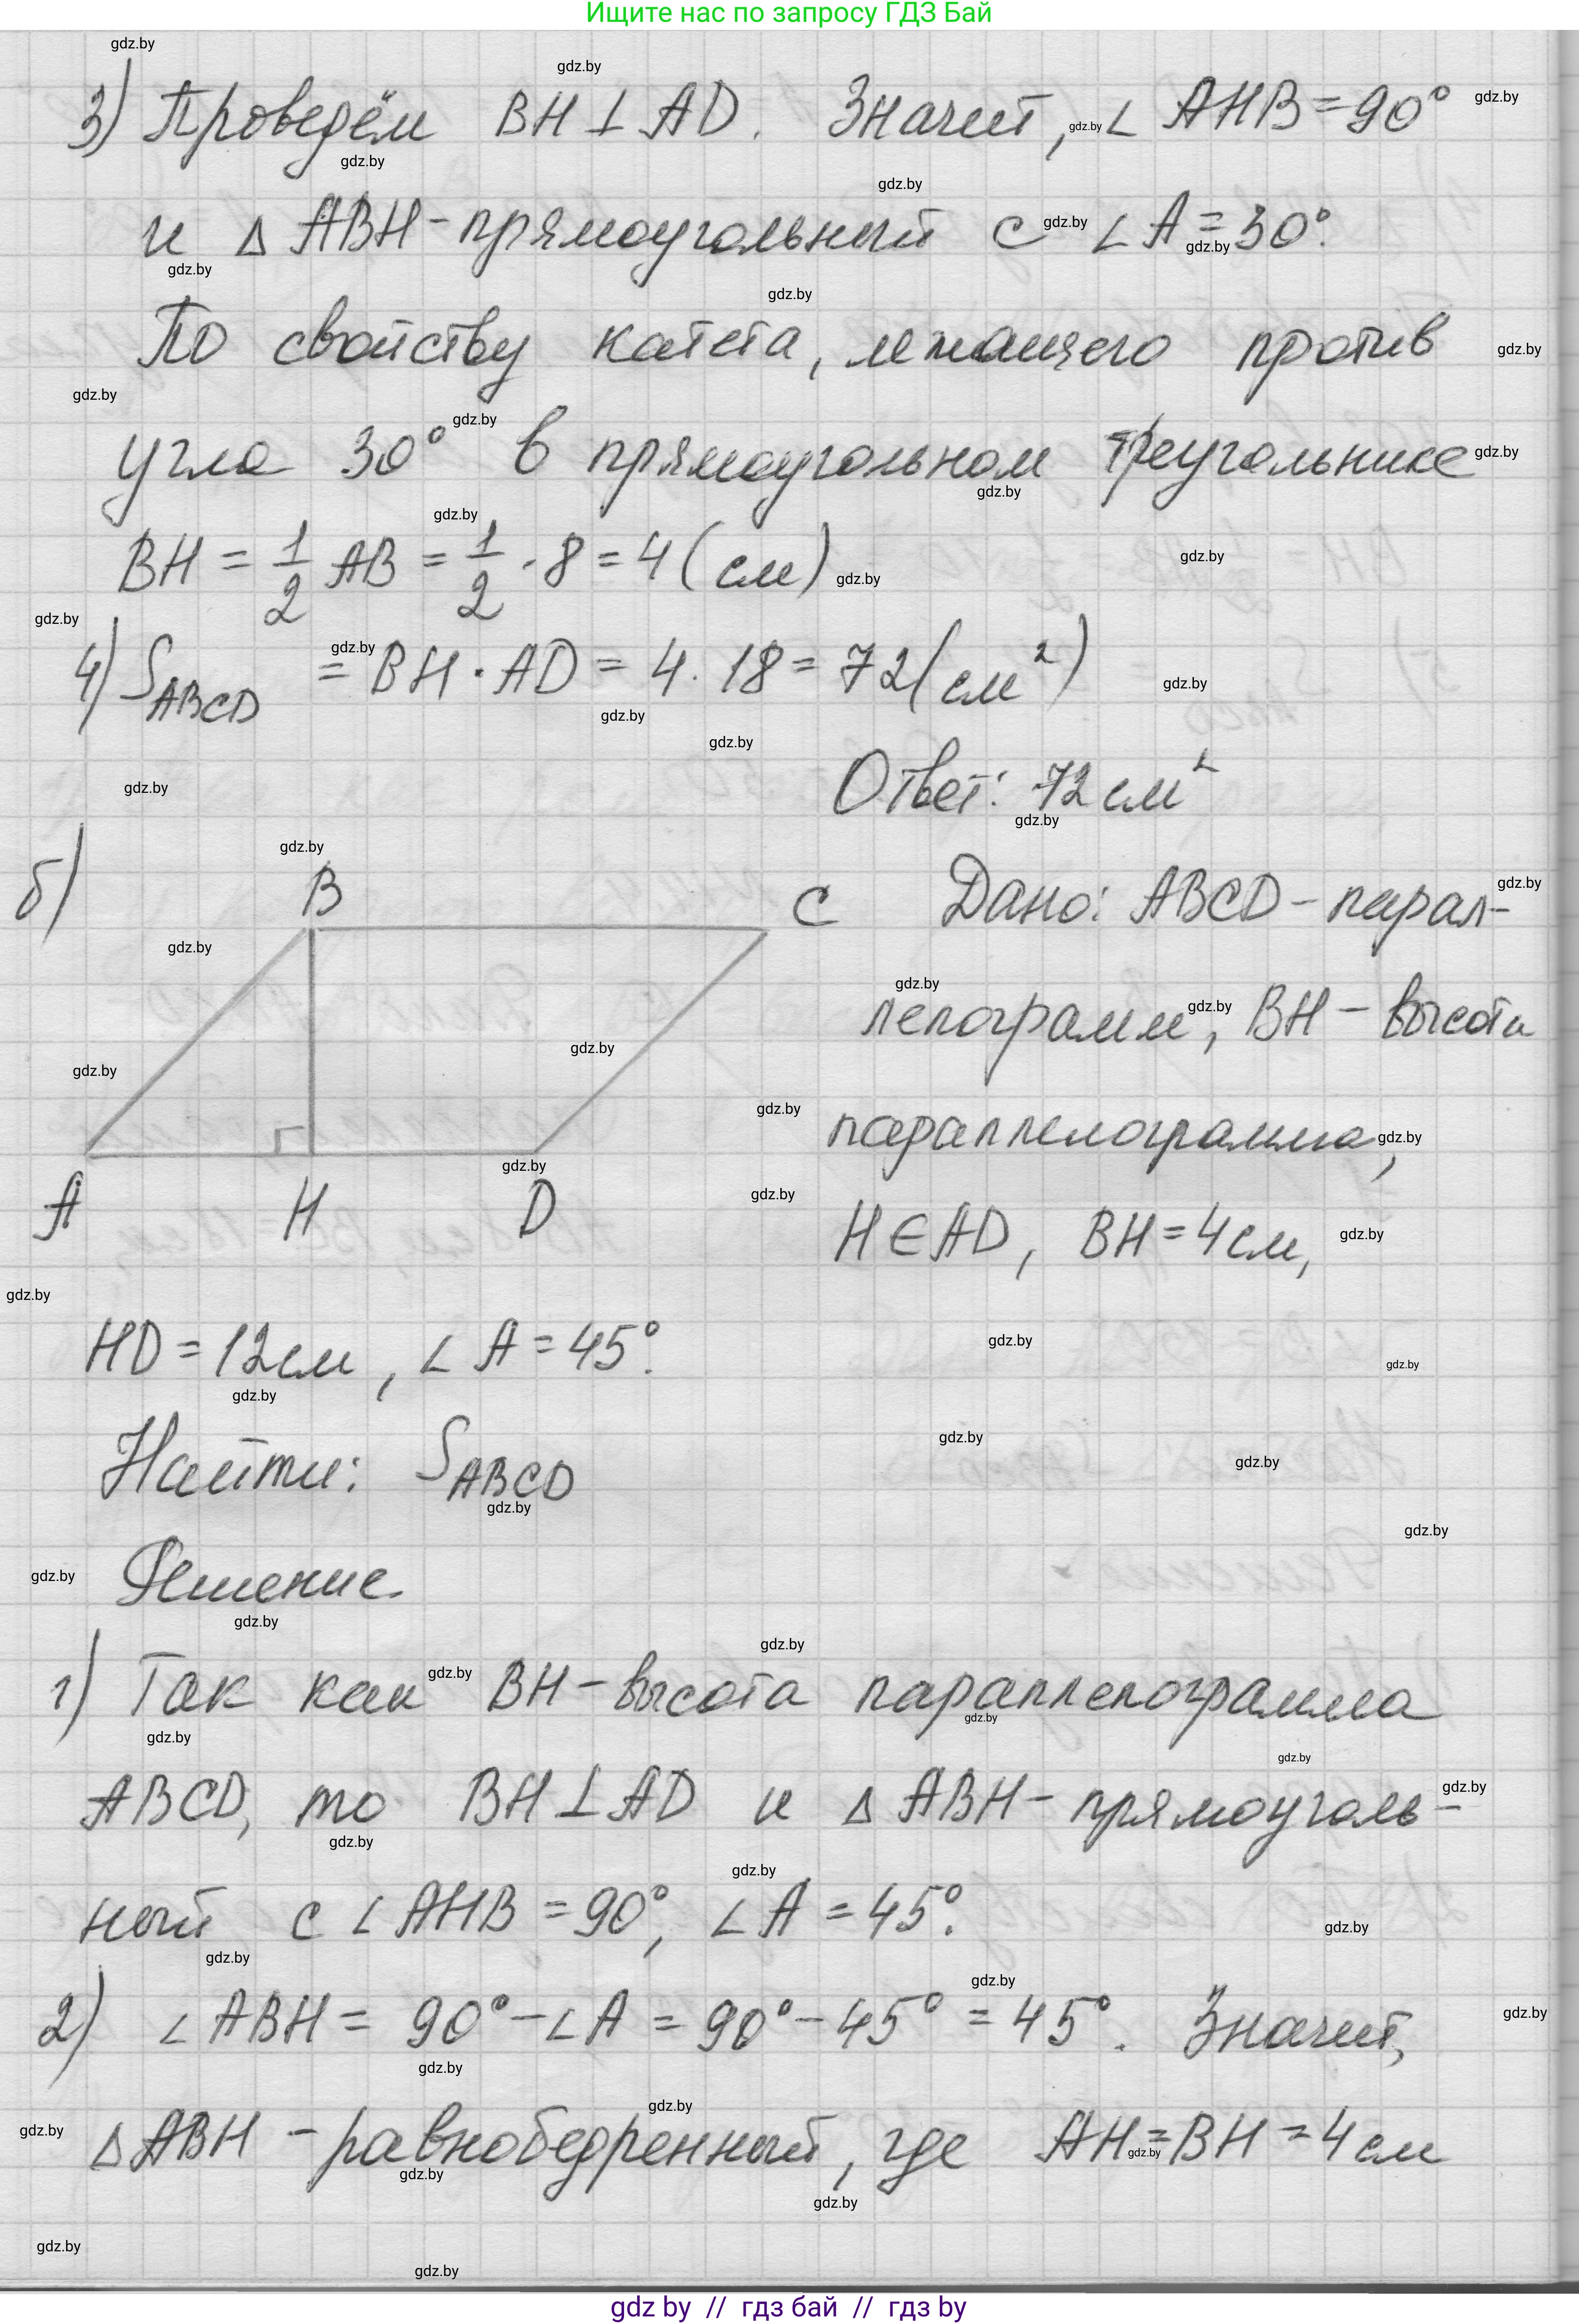 Ищите нас по запросу ГДЗ Бай
3) Проведём BH ⊥ AD. Значит, ∠AHB = 90°
и △ABH - прямоугольный с ∠A = 30°.
По свойству катета, лежащего против
угла 30° в прямоугольном треугольнике
BH = 1/2 AB = 1/2 · 8 = 4 (см)
4) S_ABCD = BH · AD = 4 · 18 = 72 (см²)
Ответ: 72 см²
б)
B
C
A
H
D
Дано: ABCD - парал-
лелограмм, BH - высота
параллелограмма,
H ∈ AD, BH = 4 см,
HD = 12 см, ∠A = 45°.
Найти: S_ABCD
Решение.
1) Так как BH - высота параллелограмма
ABCD, то BH ⊥ AD и △ABH - прямоуголь-
ный с ∠AHB = 90°, ∠A = 45°.
2) ∠ABH = 90° - ∠A = 90° - 45° = 45°. Значит,
△ABH - равнобедренный, где AH = BH = 4 см
gdz.by
gdz by // гдз бай // гдз by